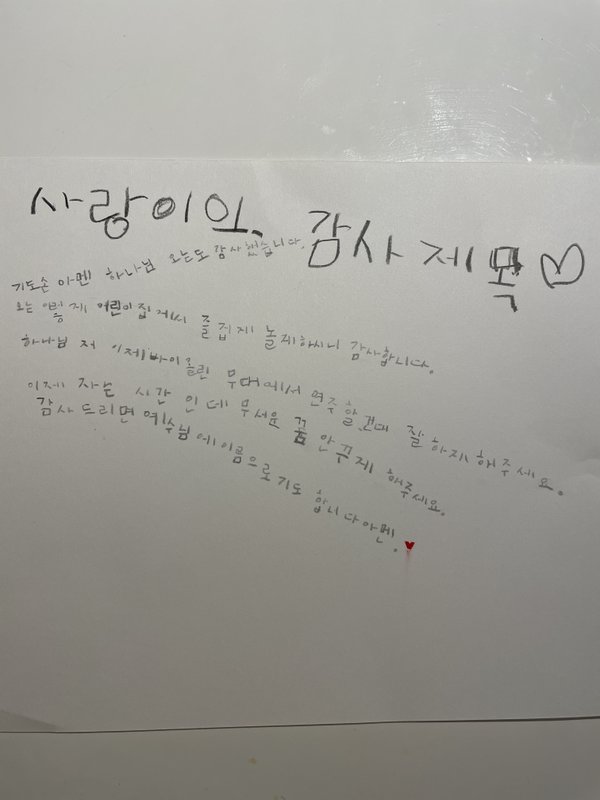 사랑이의 감사 제목
기도손 아멘 하나님 오는도 감사했습니다.
오는 제 어린이집 게서 즐겁제 놀제하시니 감사합니다.
하나님 저 이제 바이흘린 무대에서 연주할건대 잘 하제 해주세요.
이제 자는 시간 인데 무서운 꿈 안꾸제 해주세요.
감사드리면 예수님에 이름으로 기도 합니다 아멘.